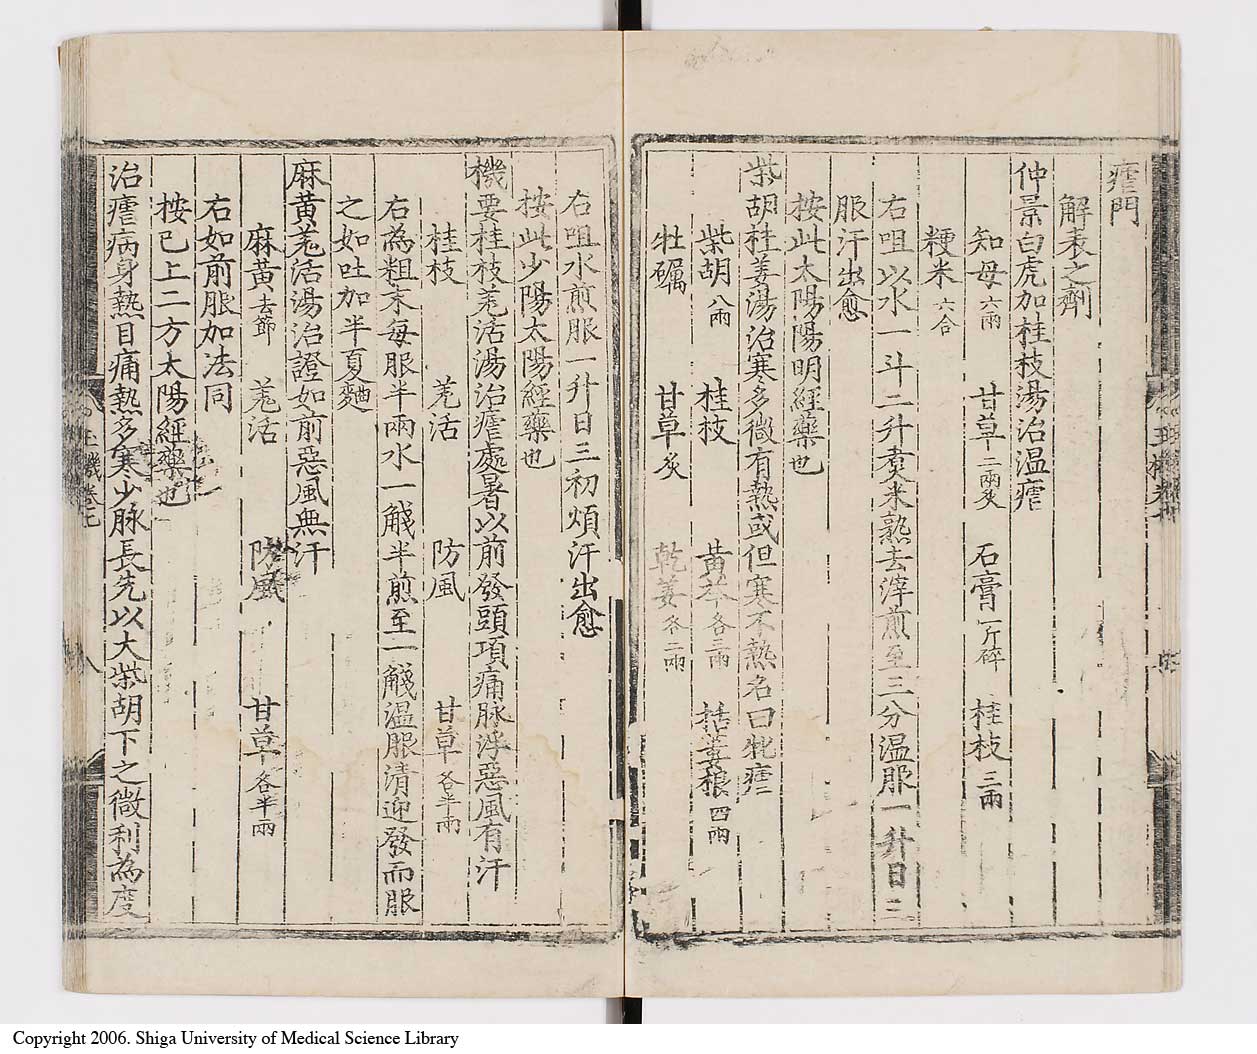 瘧門
解表之劑
仲景白虎加桂枝湯治温瘧
知母六兩 甘草二兩炙 石膏一斤碎 桂枝三兩
粳米六合
右咀以水一斗二升煑米熟去滓煎至三分温服一升日三
服汗出愈
按此太陽陽明經藥也
柴胡桂姜湯治寒多微有熱或但寒不熱名曰牝瘧
柴胡八兩 桂枝 黃芩各三兩 括蔞根四兩
牡礪 甘草炙 乾姜各二兩
右咀水煎服一升日三初煩汗出愈
按此少陽太陽經藥也
機要桂枝羗活湯治瘧處暑以前發頭項痛脉浮惡風有汗
桂枝 羗活 防風 甘草各半兩
右為粗末每服半兩水一觮半煎至一觮温服清迎發而服
之如吐加半夏麯
麻黃羗活湯治證如前惡風無汗
麻黃去節 羗活 防風 甘草各半兩
右如前服加法同
按已上二方太陽經藥也
治瘧病身熱目痛熱多寒少脉長先以大柴胡下之微利為度
Copyright 2006. Shiga University of Medical Science Library